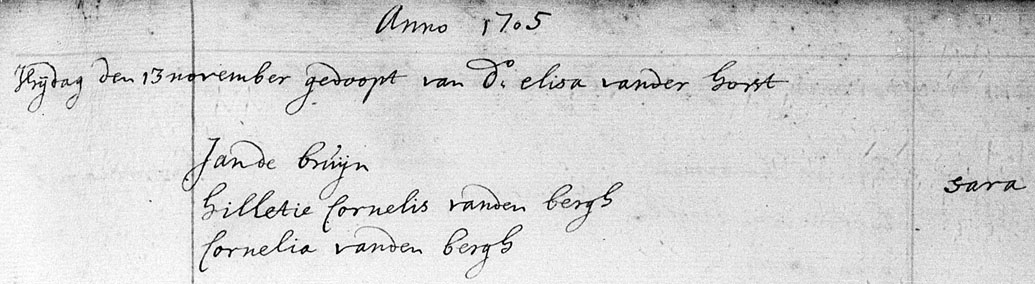 Anno 1705
Vrijdag den 13 november gedoopt van Do. elisa vander horst
Jan de bruijn
hilletie Cornelis vanden bergh
sara
Cornelia vanden bergh